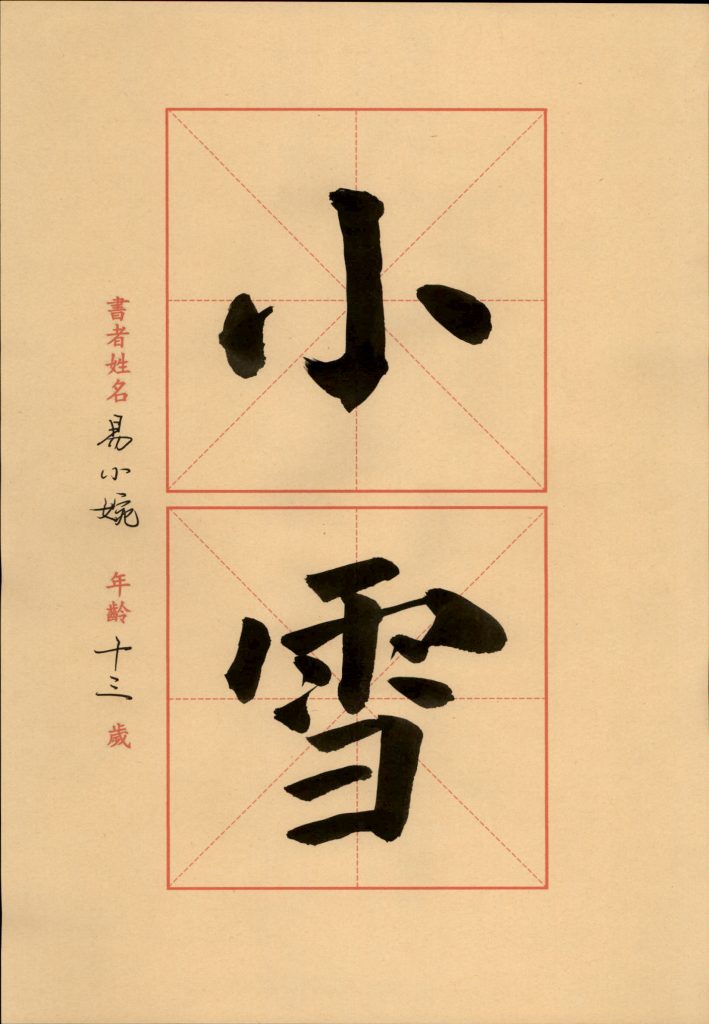 小雪
書者姓名 易小婉 年齡 十三 歲